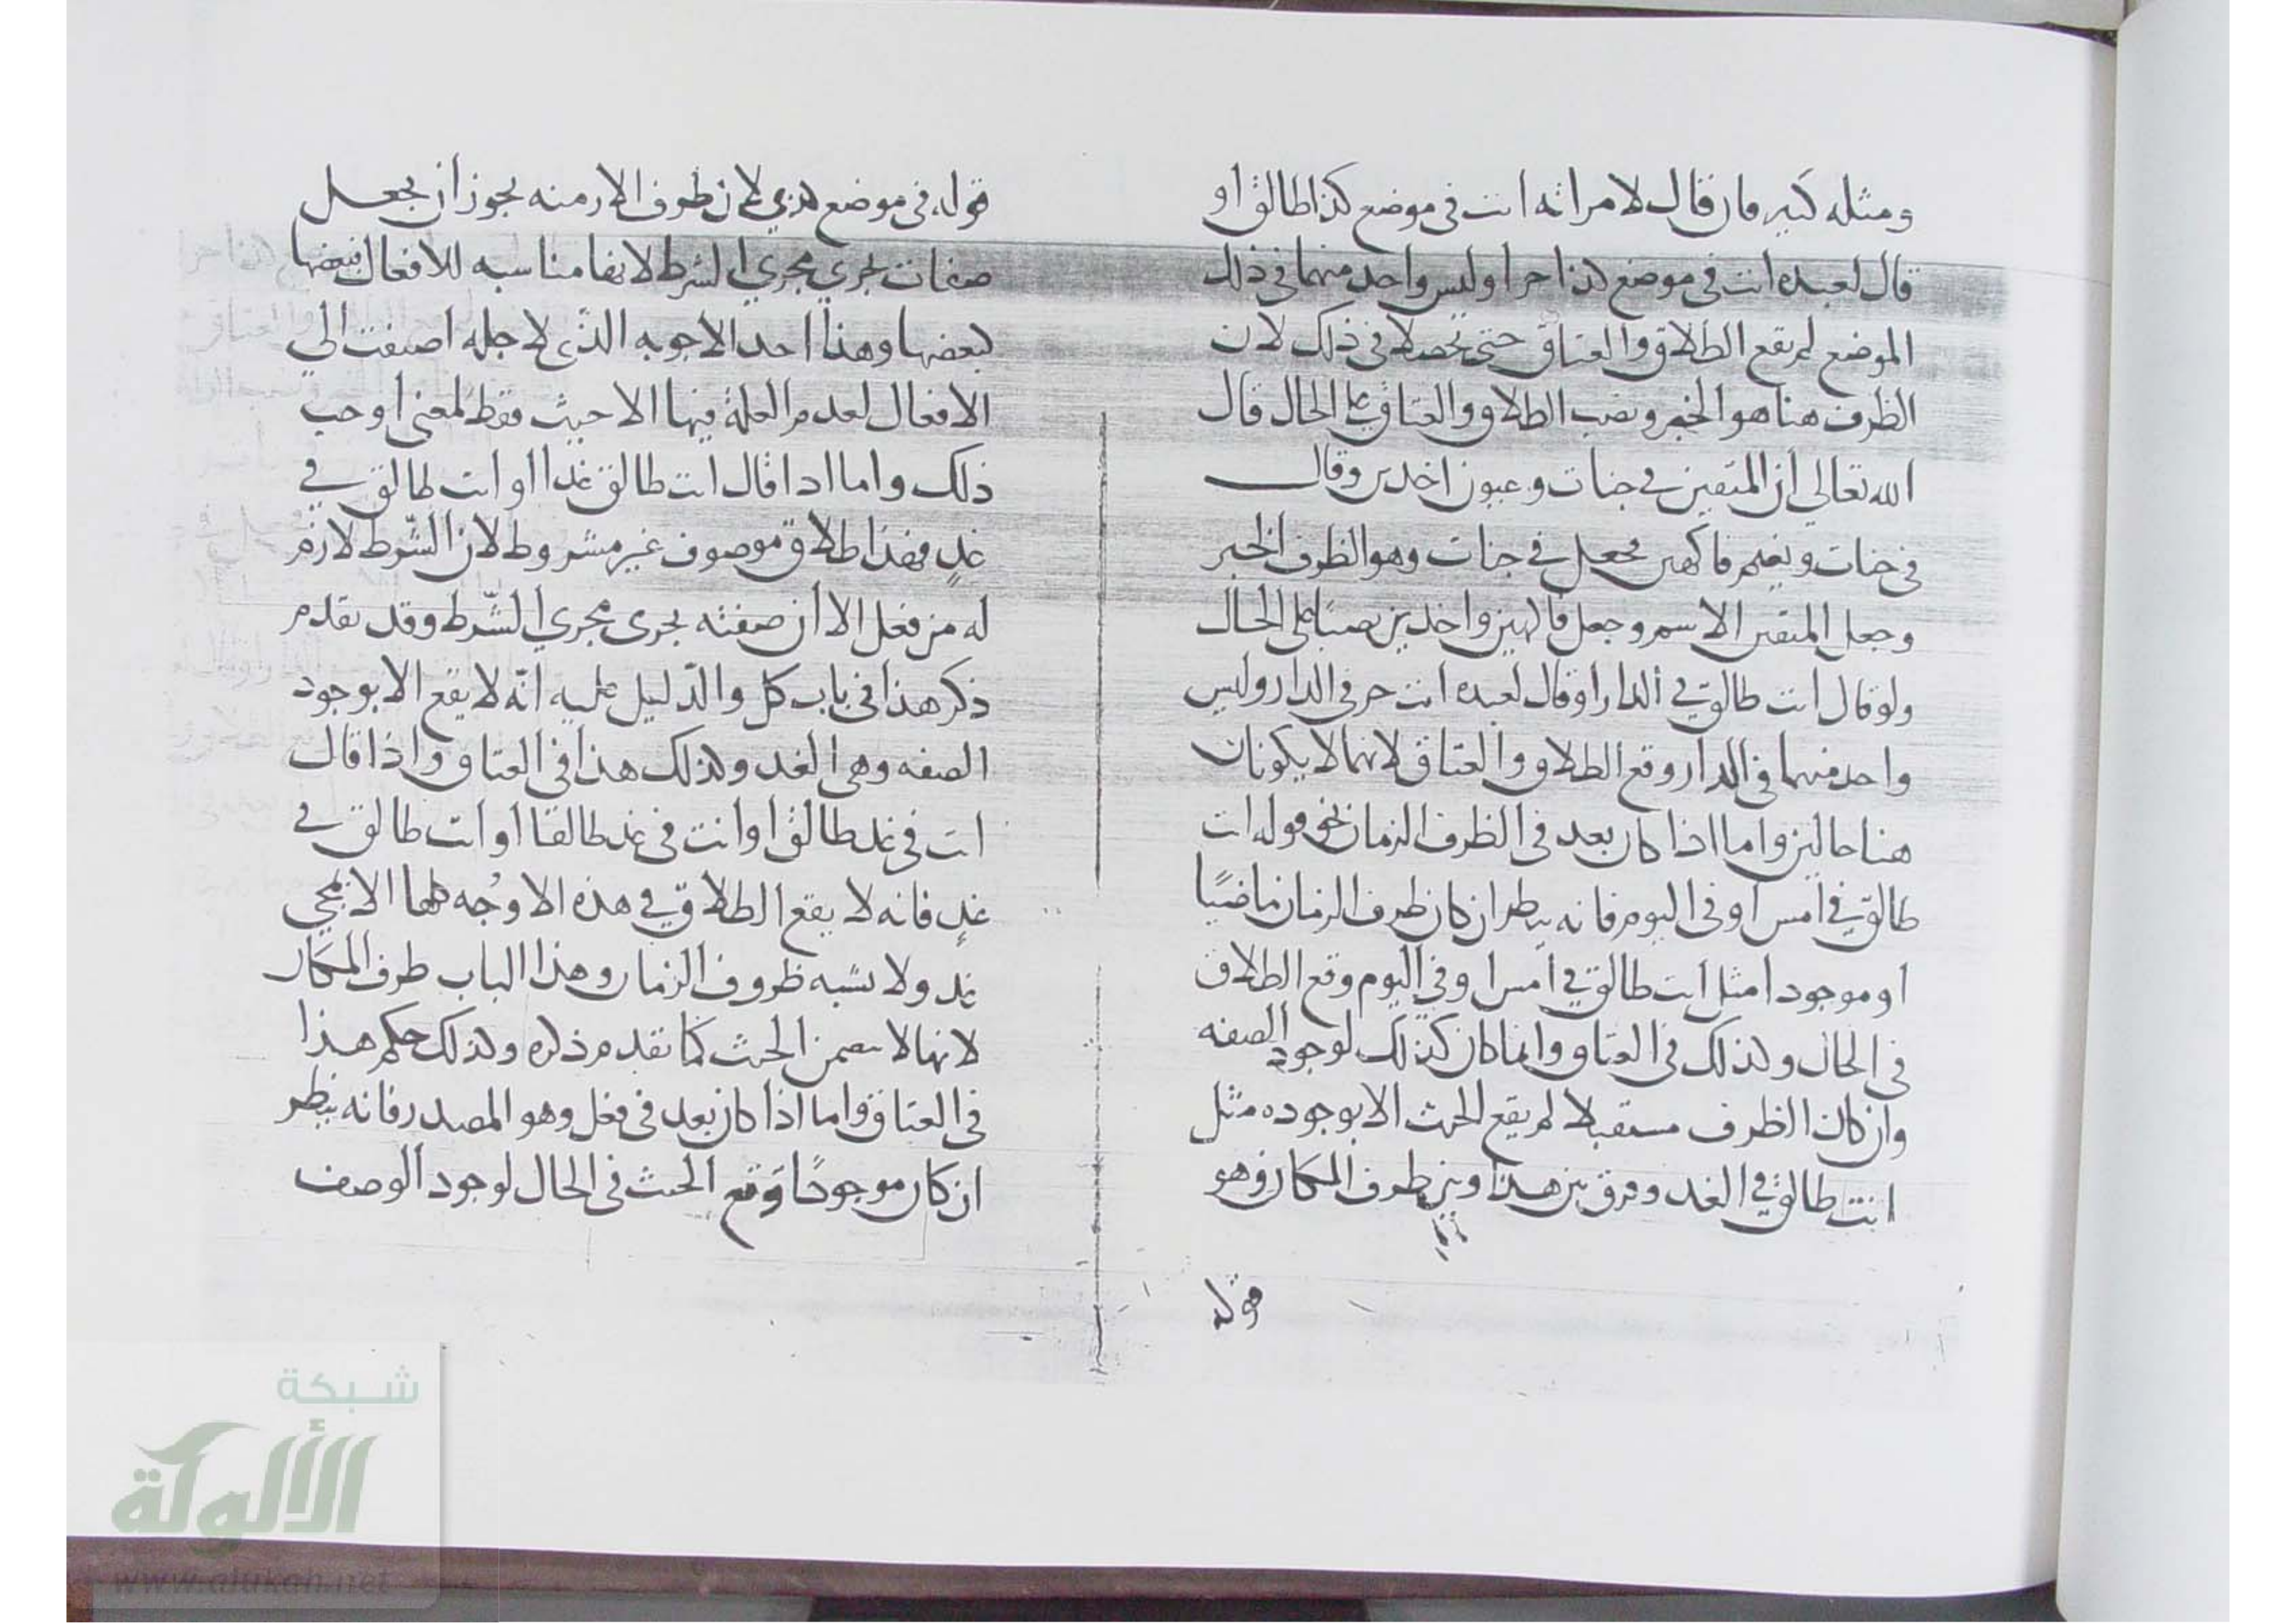 ومثله كثير فان قال لامراته انت في موضع كذا طالقا او
قال لعبده انت في موضع كذا حرا وليس واحد منهما في ذلك
الموضع لم يقع الطلاق والعتاق حتى يحصلا في ذلك لان
الظرف هنا هو الخبر ونصب الطلاق والعتاق على الحال قال
الله تعالى ان المتقين في جنات وعيون اخذين وقال
في جنات ونعيم فاكهين فجعل في جنات وهو الظرف الخبر
وجعل المتقين الاسم وجعل فاكهين واخذين نصبًا على الحال
ولو قال انت طالق في الدار او قال لعبده انت حر في الدار وليس
واحد منهما في الدار وقع الطلاق والعتاق لانهما لا يكونان
هنا حالين واما اذا كان بعد في الظرف الزمان نحو قوله انت
طالق في امس او في اليوم فانه ينظر ان كان ظرف الزمان ماضيًا
او موجودا مثل انت طالق في امس او في اليوم وقع الطلاق
في الحال وكذلك في العتاق وانما كان كذلك لوجود الصفه
وان كان الظرف مستقبلا لم يقع الحنث الا بوجوده مثل
انت طالق في الغد وفرق بين هذا وبين ظرف المكان وهو
قوله
قوله في موضع كذي لان ظروف الازمنه يجوز ان يجعل
صفات تجري مجري الشرط لانها مناسبه للافعال فبعضها
لبعضها وهذا احد الاجوبه الذي لاجله اضيفت الي
الافعال لعدم العلة فيها الا حيث فقط لمعنى اوجب
ذلك واما اذا قال انت طالق غدا او انت طالق في
غدٍ فهذا طلاق موصوف غير مشروط لان الشّرط لازم
له من فعل الا ان صفته يجرى مجري الشّرط وقد تقدم
ذكر هذا في باب كل والدّليل عليه انّه لا يقع الا بوجود
الصفه وهي الغد وكذلك هذا في العتاق واذا قال
انت في غد طالق او انت في غد طالقا او انت طالق في
غدٍ فانه لا يقع الطلاق في هذه الاوجه كلها الا بمجي
غد ولا تشبه ظروف الزمان وهذا الباب ظرف المكان
لانها لا تتضمن الحنث كما تقدم ذكره وكذلك حكم هذا
في العتاق واما اذا كان بعد في فعل وهو المصدر فانه ينظر
ان كان موجودًا وقع الحنث في الحال لوجود الوصف
شبكة
الألوكة
www.alukah.net